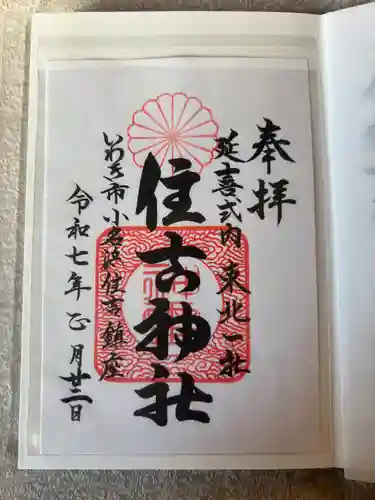 奉拝
延喜式内東北一社
住吉神社
いわき市小名浜住吉鎮座
令和七年正月廿二日